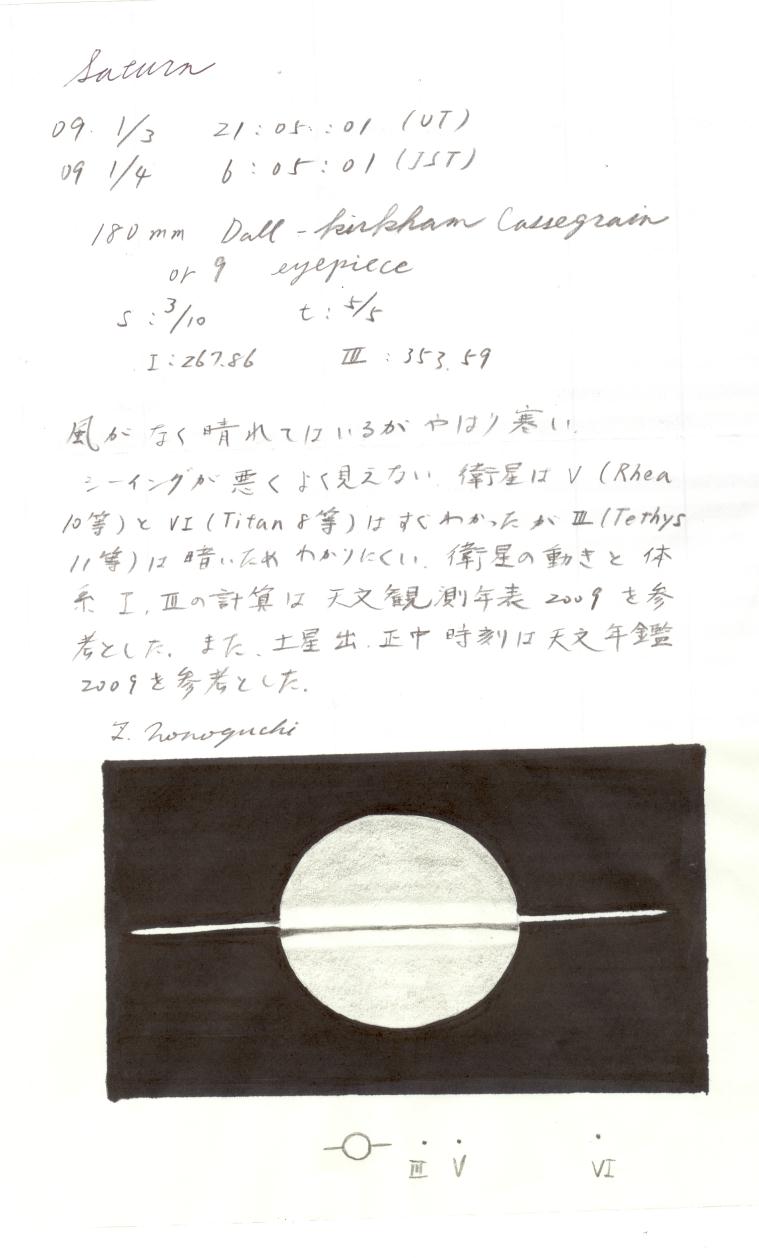 Saturn
09. 1/3 21:05:01 (UT)
09 1/4 6:05:01 (JST)
180mm Dall-kirkham Cassegrain
or 9 eyepiece
s:3/10 t:5/5
I:267.86 III:353.59
風がなく晴れてはいるがやはり寒い.
シーイングが悪くよく見えない. 衛星は V (Rhea
10等)と VI (Titan 8等)はすぐわかったが III (Tethys
11等)は暗いためわかりにくい. 衛星の動きと体
系 I, IIIの計算は天文観測年表 2009を参
考とした. また、土星出.正中時刻は天文年鑑
2009を参考とした.
Z. Nonoguchi
III V VI